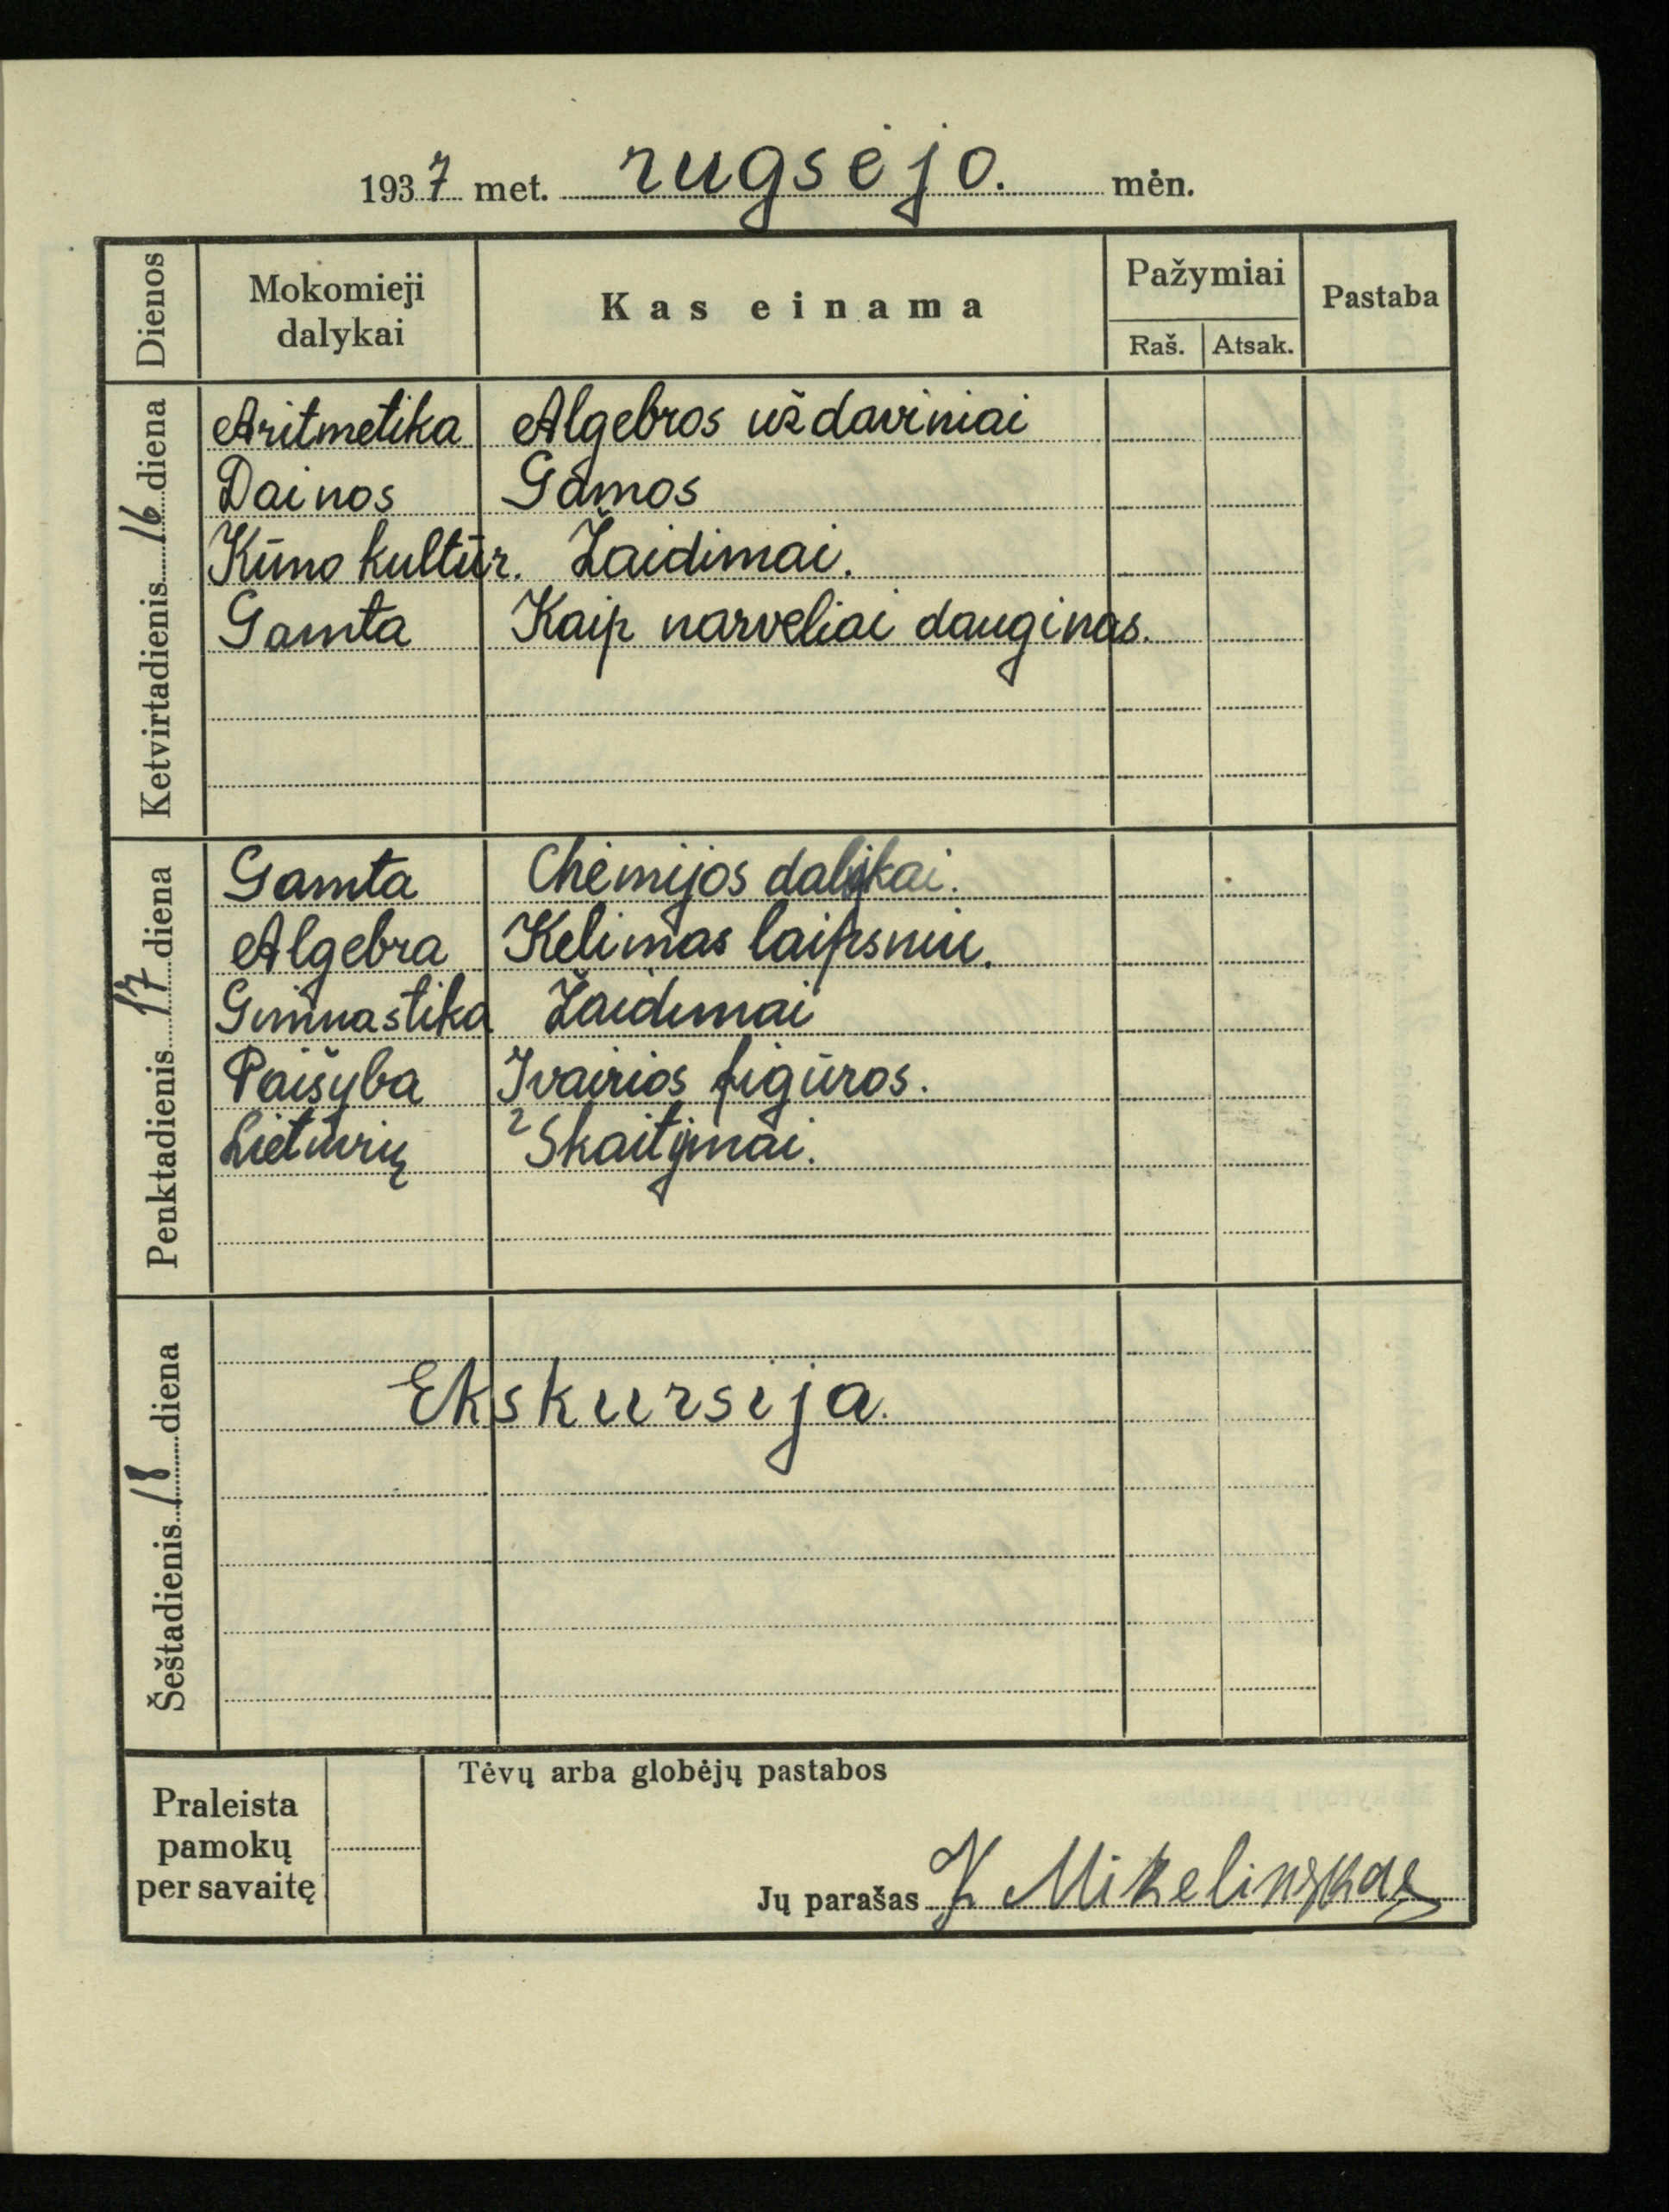 1937 met. rugsėjo. mėn.
Dienos
Mokomieji
dalykai
Kas einama
Pažymiai
Raš. Atsak.
Pastaba
Ketvirtadienis 16 diena
Aritmetika Algebros uždaviniai
Dainos Gamos
Kūno kultūr. Žaidimai.
Gamta Kaip narveliai dauginas.
Penktadienis 17 diena
Gamta Chėmijos dalykai.
Algebra Kėlimas laipsniu.
Gimnastika Žaidimai
Paišyba Įvairios figūros.
Lietuvių Skaitymai.
Šeštadienis 18 diena
Ekskursija.
Praleista
pamokų
per savaitę
Tėvų arba globėjų pastabos
Jų parašas K Mikelinskas